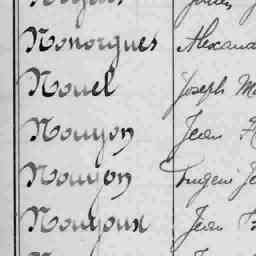 Nonorgues Alexand
Nouel Joseph Ma
Nouyon Jean
Nouyon Eugène Je
Nouyoux Jean